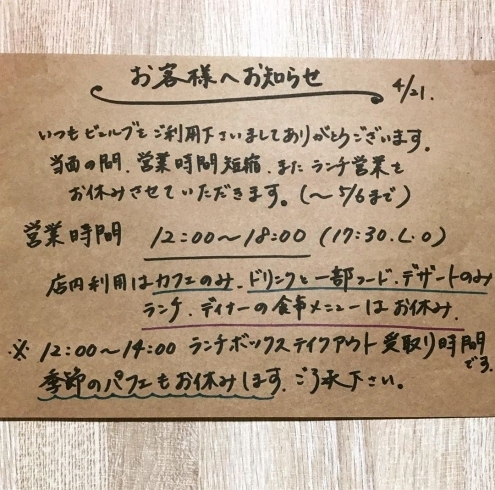 お客様へお知らせ
4/21.
いつもビュルブをご利用下さいましてありがとうございます。
当面の間、営業時間短縮、またランチ営業を
お休みさせていただきます。(〜5/6まで)
営業時間 12:00〜18:00 (17:30.L.O)
店内利用はカフェのみ、ドリンクと一部フード、デザートのみ
ランチ、ディナーの食事メニューはお休み.
※ 12:00〜14:00 ランチボックステイクアウト受取り時間です.
季節のパフェもお休みします、ご了承下さい。